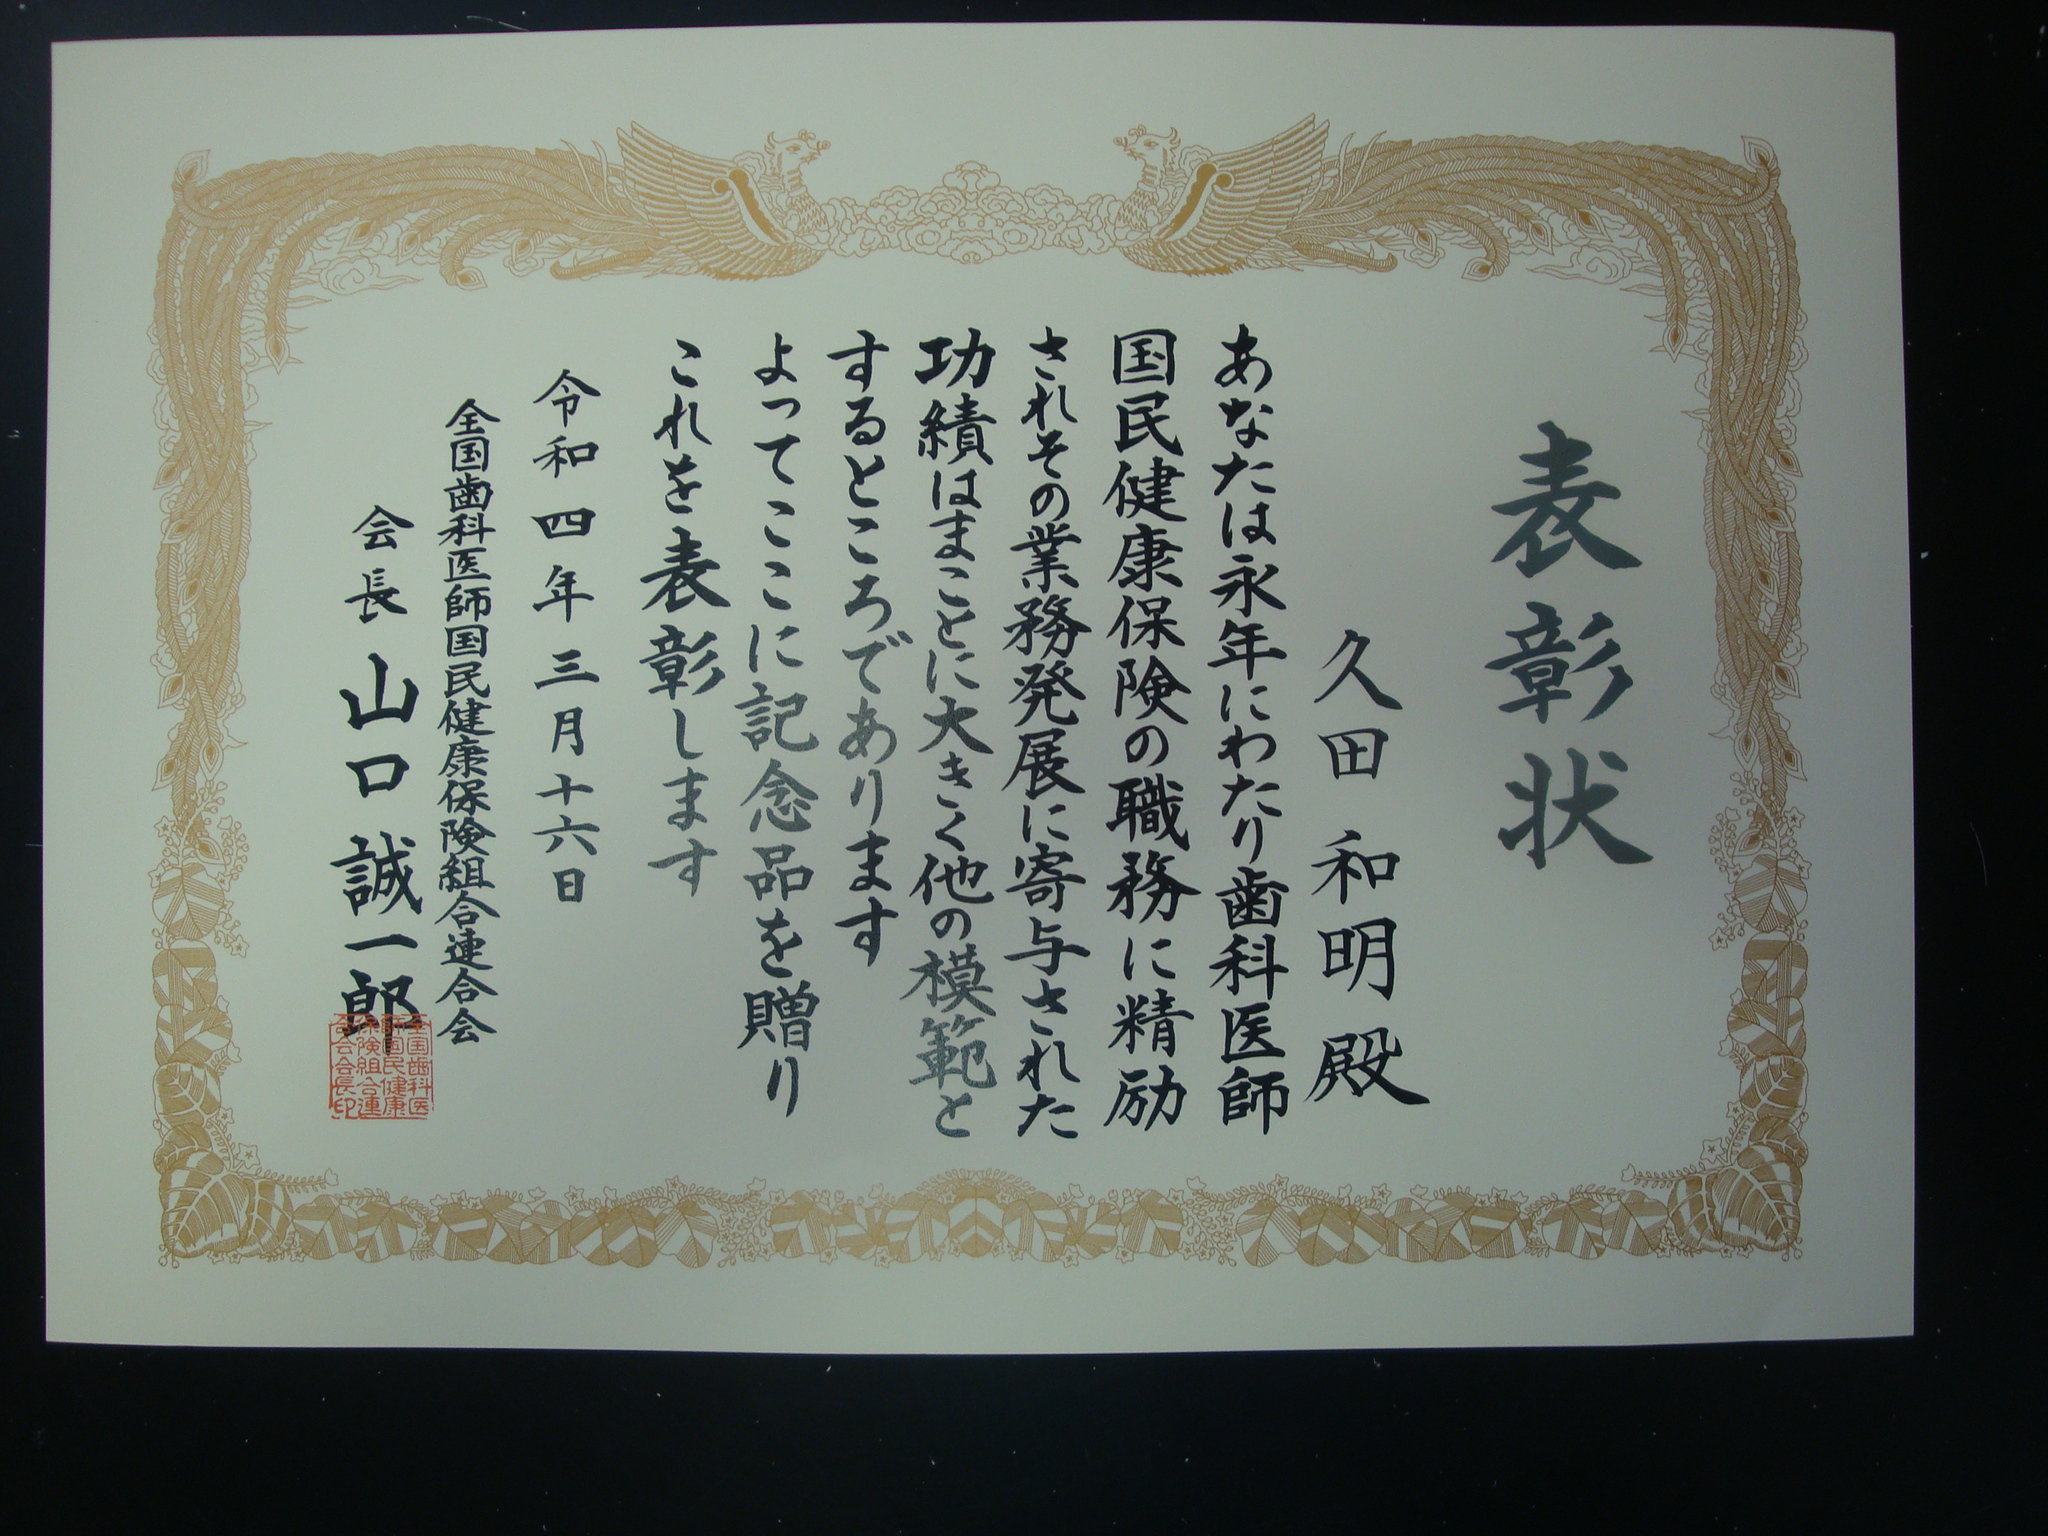 表彰状
久田和明殿
あなたは永年にわたり歯科医師
国民健康保険の職務に精励
されその業務発展に寄与された
功績はまことに大きく他の模範と
するところであります
よってここに記念品を贈り
これを表彰します
令和四年三月十六日
全国歯科医師国民健康保険組合連合会
会長 山口誠一郎
全国歯科医
師国民健康
保険組合連
合会会長印